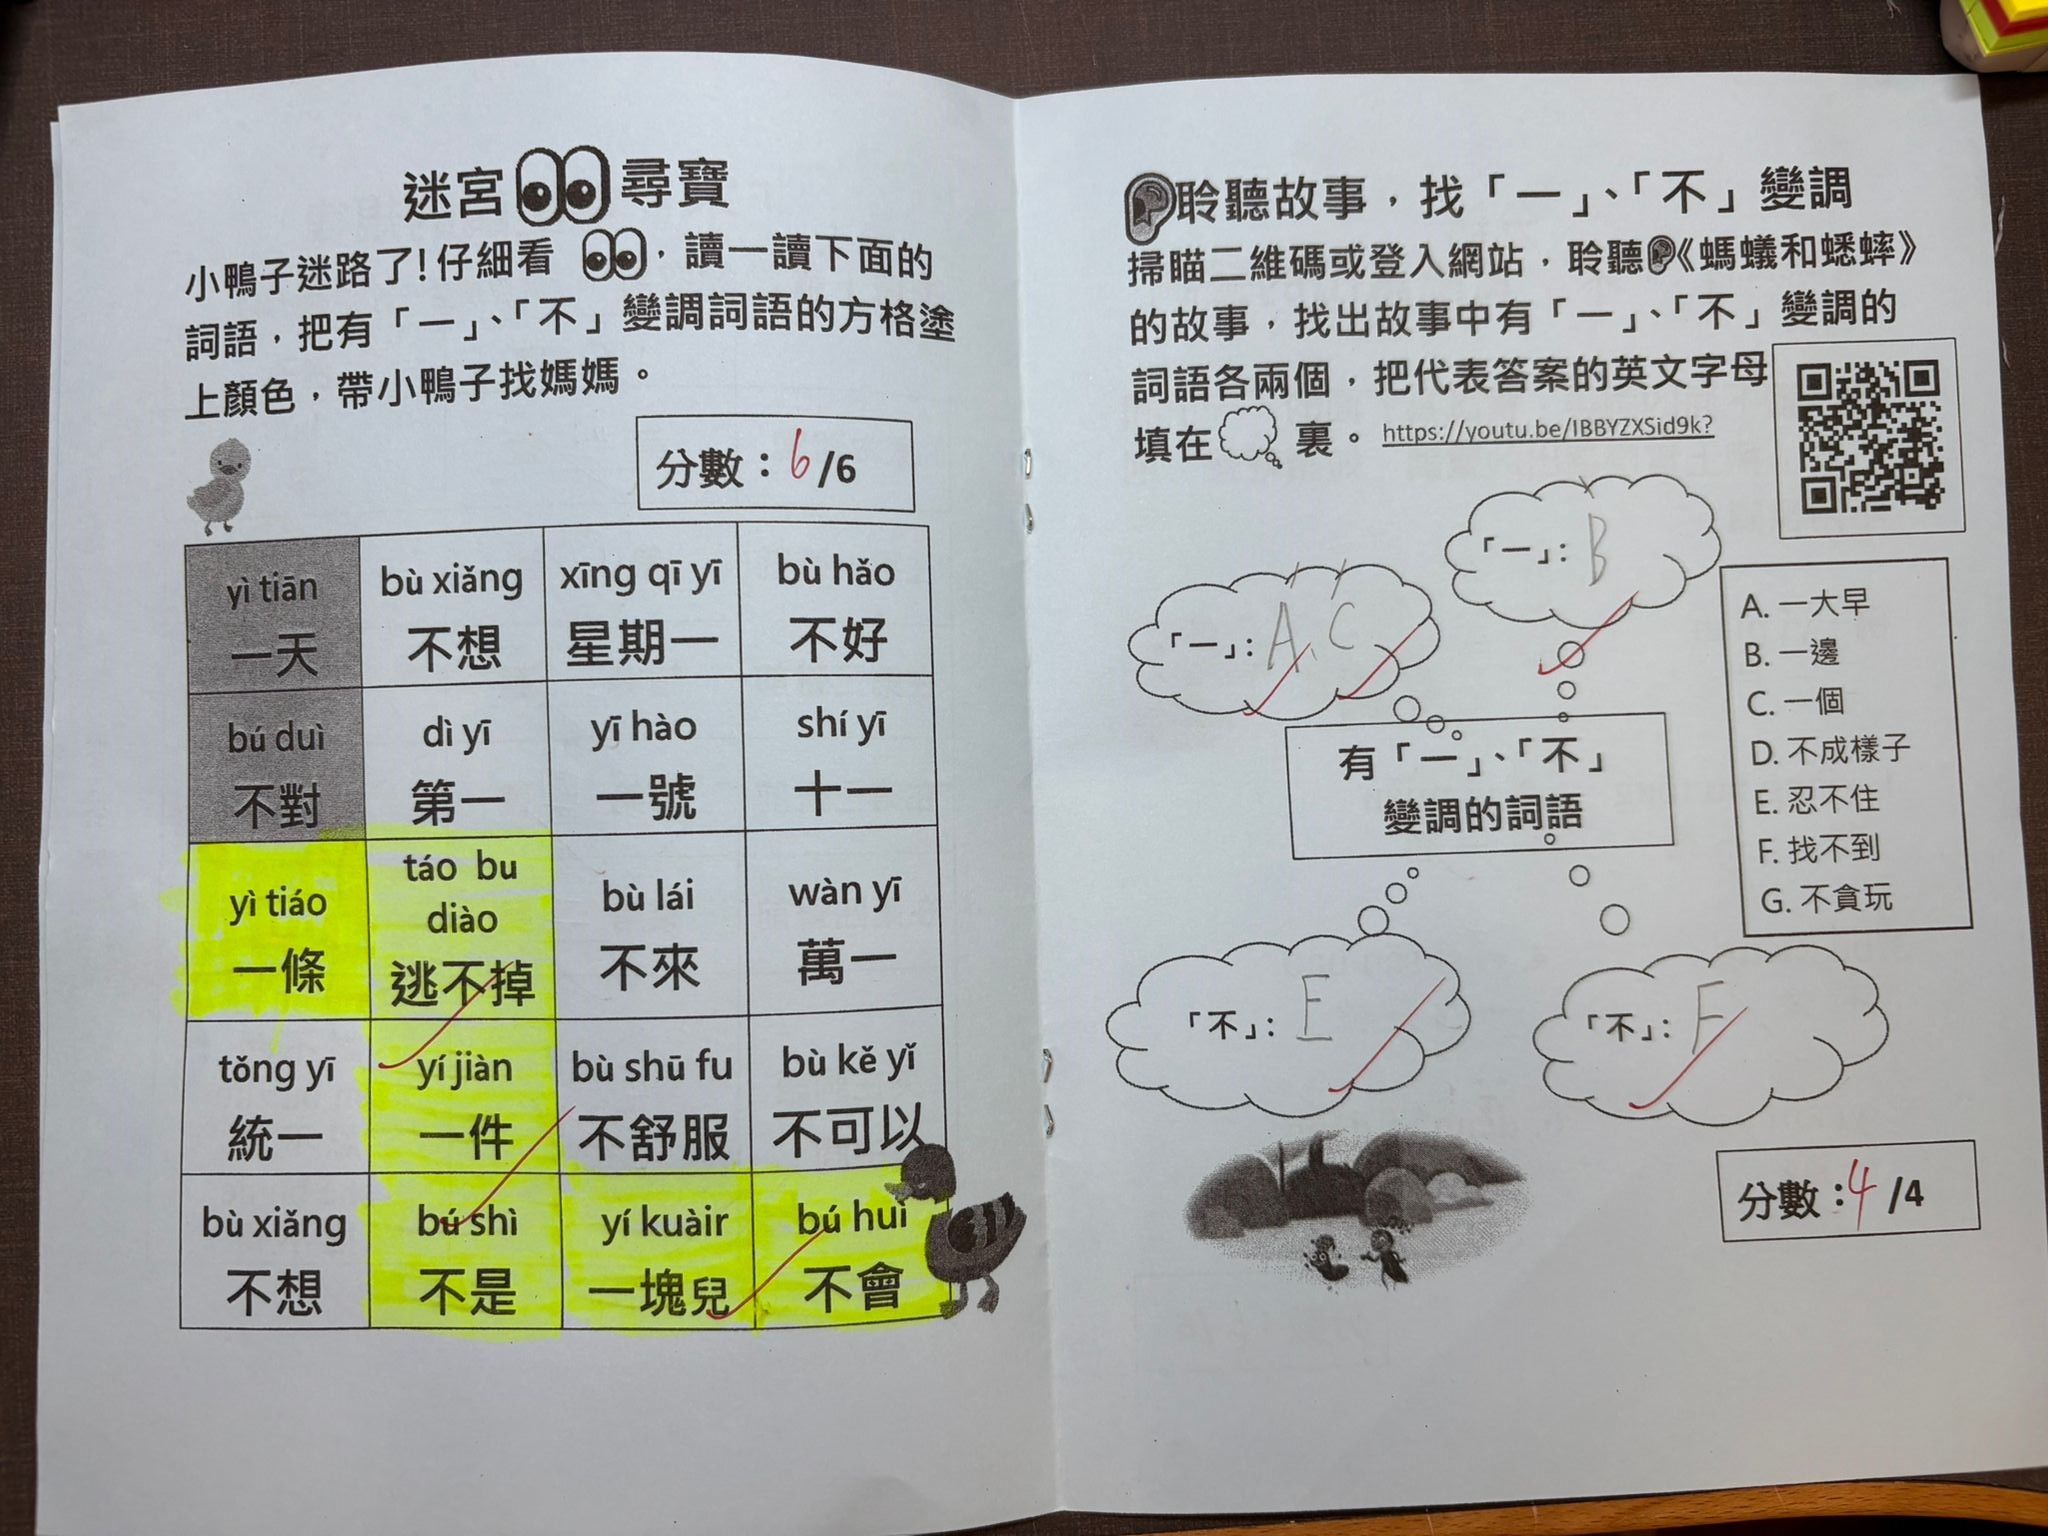 迷宮尋寶
小鴨子迷路了!仔細看 ，讀一讀下面的
詞語，把有「一」、「不」變調詞語的方格塗
上顏色，帶小鴨子找媽媽。
分數：6/6
yì tiān bù xiǎng xīng qī yī bù hǎo
一天 不想 星期一 不好
bú duì dì yī yī hào shí yī
不對 第一 一號 十一
yì tiáo táo bu diào bù lái wàn yī
一條 逃不掉 不來 萬一
tǒng yī yí jiàn bù shū fu bù kě yǐ
統一 一件 不舒服 不可以
bù xiǎng bú shì yí kuàir bú huì
不想 不是 一塊兒 不會
聆聽故事，找「一」、「不」變調
掃瞄二維碼或登入網站，聆聽《螞蟻和蟋蟀》
的故事，找出故事中有「一」、「不」變調的
詞語各兩個，把代表答案的英文字母
填在 裏。 https://youtu.be/IBBYZXSid9k?
「一」：B
「一」：A、C
A. 一大早
B. 一邊
C. 一個
D. 不成樣子
E. 忍不住
F. 找不到
G. 不貪玩
有「一」、「不」
變調的詞語
「不」：E
「不」：F
分數：4/4